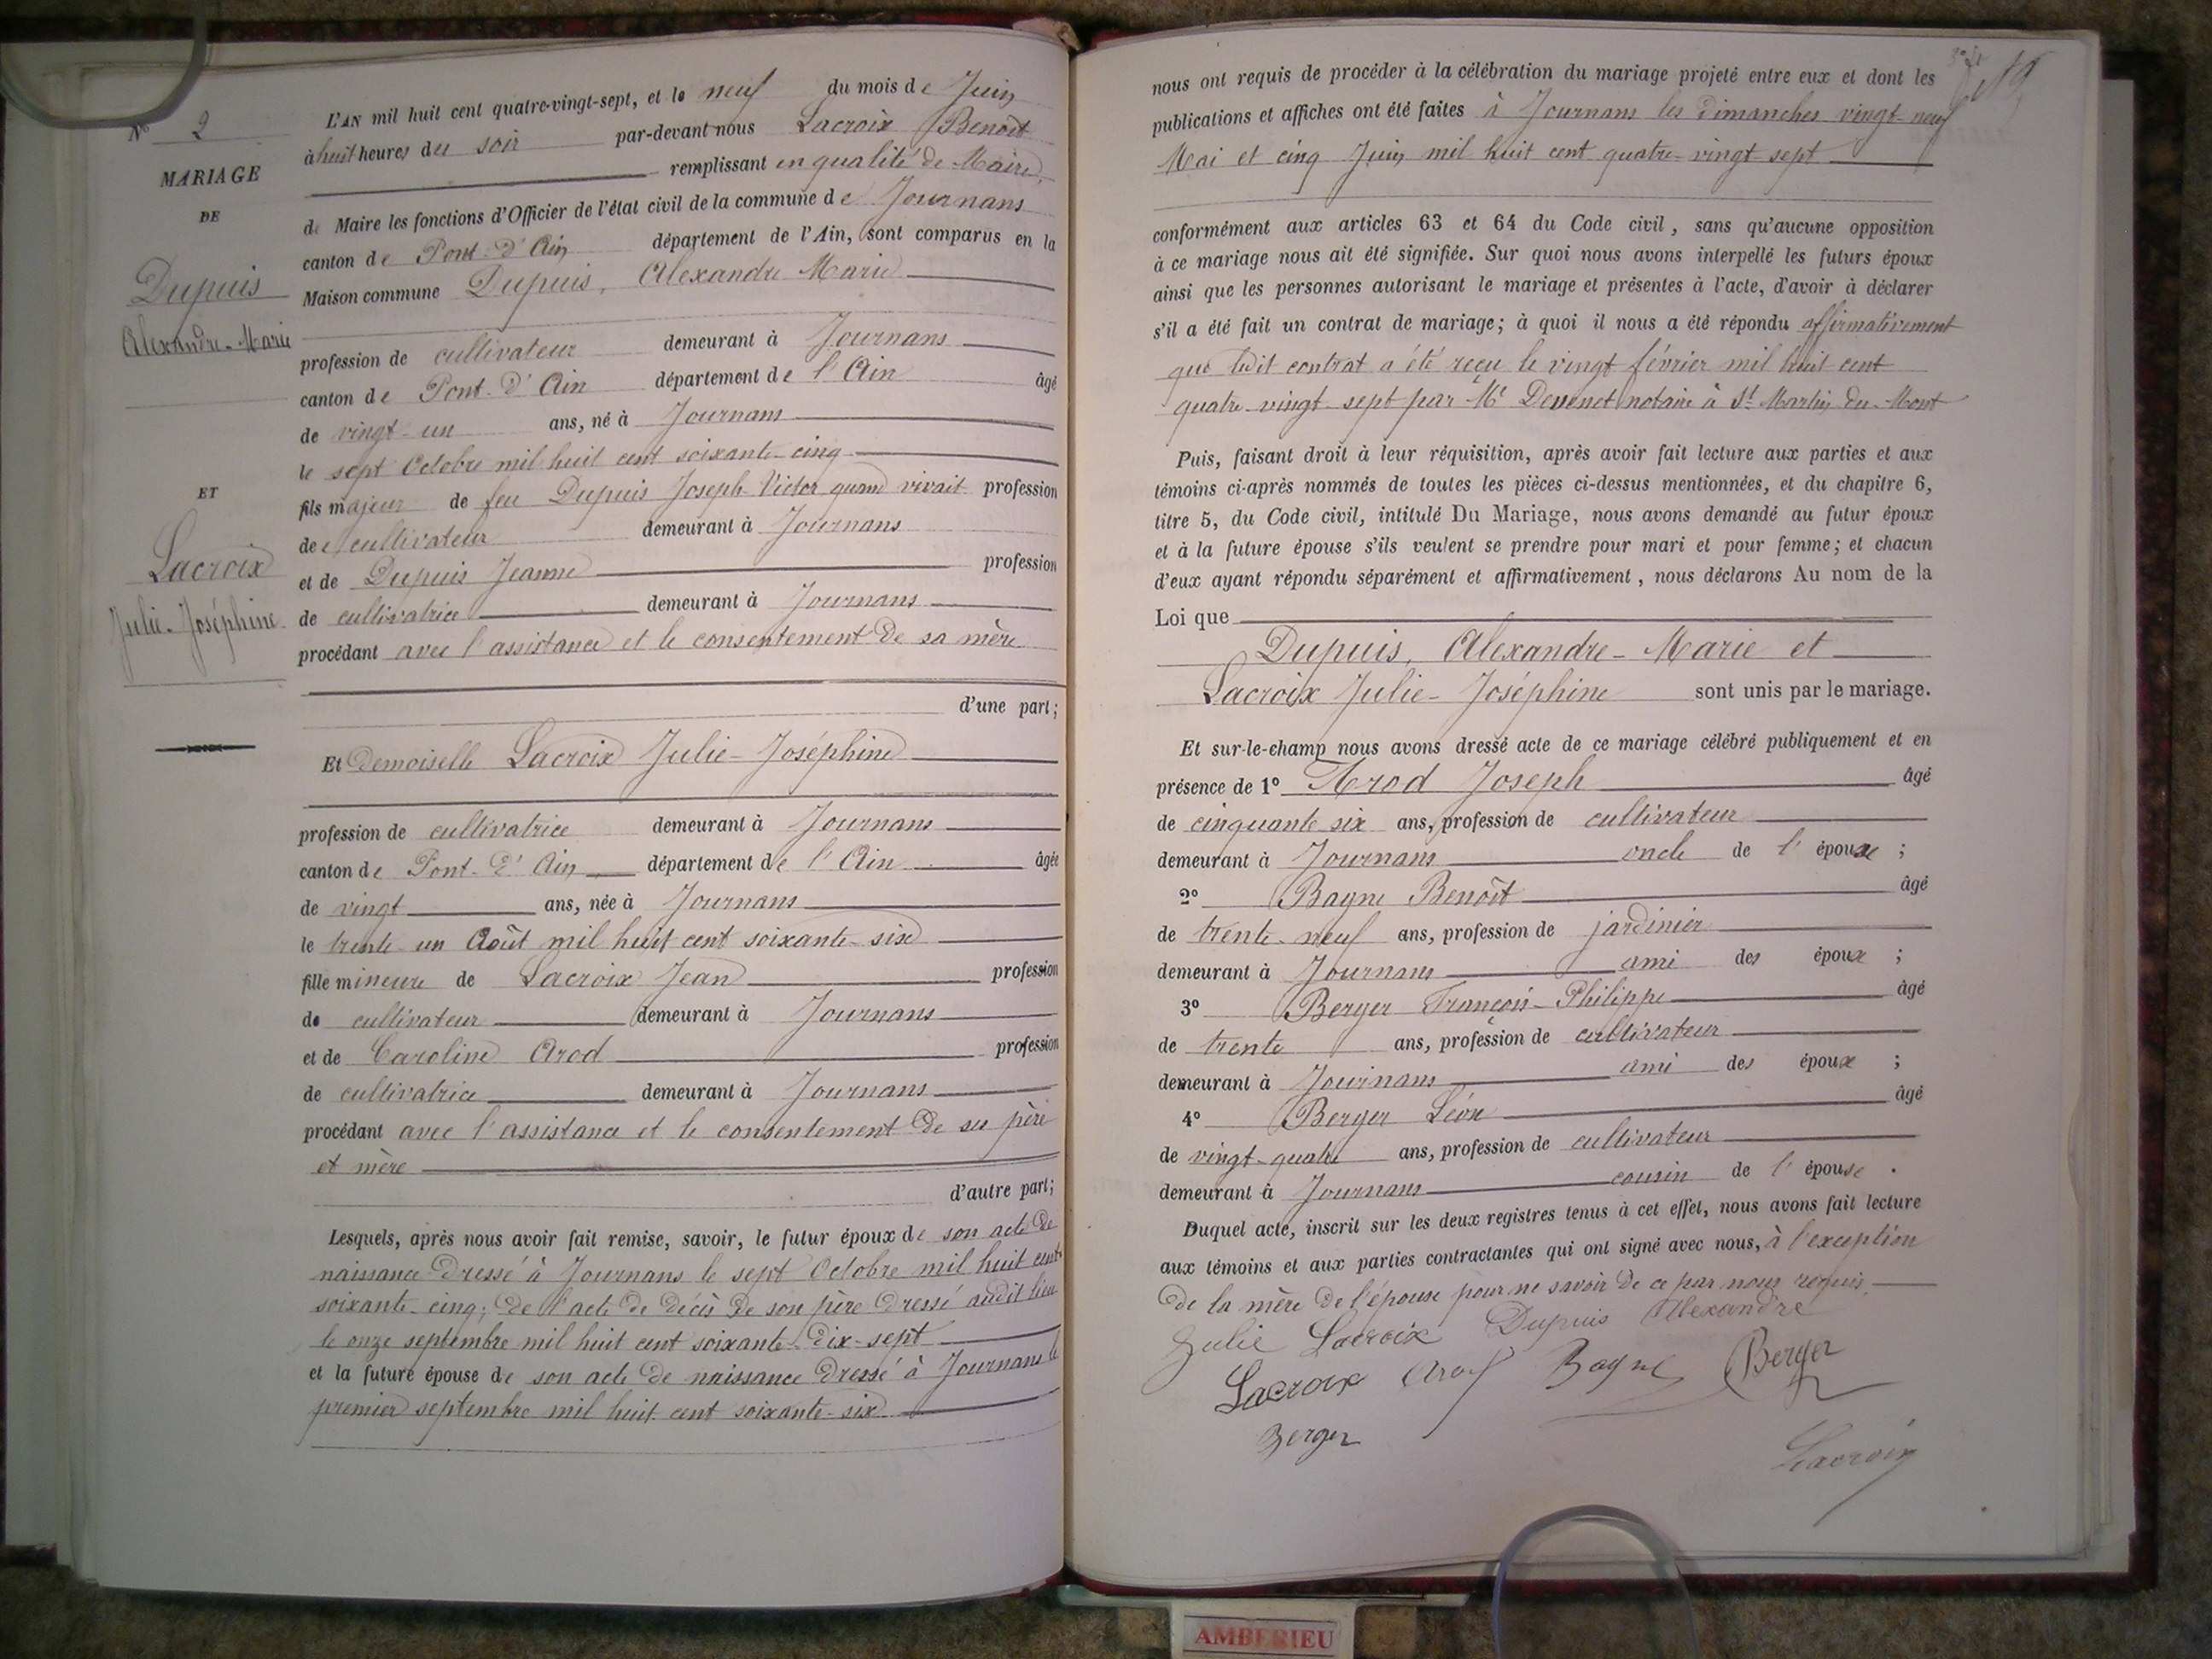 No 2
MARIAGE
DE
Dupuis
Alexandre-Marie
ET
Lacroix
Julie-Joséphine
L'AN mil huit cent quatre-vingt-sept, et le neuf du mois de Juin
à huit heures du soir par-devant nous Lacroix Benoît
remplissant en qualité de Maire
de Maire les fonctions d'Officier de l'état civil de la commune de Journans
canton de Pont-d'Ain département de l'Ain, sont comparus en la
Maison commune Dupuis, Alexandre Marie
profession de cultivateur demeurant à Journans
canton de Pont-d'Ain département de l'Ain âgé
de vingt-un ans, né à Journans
le sept Octobre mil huit cent soixante-cinq
fils majeur de feu Dupuis Joseph-Victor quand vivait profession
de cultivateur demeurant à Journans
et de Dupuis Jeanne profession
de cultivatrice demeurant à Journans
procédant avec l'assistance et le consentement de sa mère
d'une part;
Et demoiselle Lacroix Julie-Joséphine
profession de cultivatrice demeurant à Journans
canton de Pont-d'Ain département de l'Ain âgée
de vingt ans, née à Journans
le trente-un Août mil huit cent soixante-six
fille mineure de Lacroix Jean profession
de cultivateur demeurant à Journans
et de Caroline Arod profession
de cultivatrice demeurant à Journans
procédant avec l'assistance et le consentement de ses père
et mère
d'autre part;
Lesquels, après nous avoir fait remise, savoir, le futur époux de son acte de
naissance dressé à Journans le sept Octobre mil huit cent
soixante-cinq; de l'acte de décès de son père dressé audit lieu
le onze septembre mil huit cent soixante-dix-sept
et la future épouse de son acte de naissance dressé à Journans le
premier septembre mil huit cent soixante-six
19
nous ont requis de procéder à la célébration du mariage projeté entre eux et dont les
publications et affiches ont été faites à Journans les dimanches vingt-neuf
Mai et cinq Juin mil huit cent quatre-vingt-sept
conformément aux articles 63 et 64 du Code civil, sans qu'aucune opposition
à ce mariage nous ait été signifiée. Sur quoi nous avons interpellé les futurs époux
ainsi que les personnes autorisant le mariage et présentes à l'acte, d'avoir à déclarer
s'il a été fait un contrat de mariage; à quoi il nous a été répondu affirmativement
que ledit contrat a été reçu le vingt février mil huit cent
quatre-vingt-sept par Me Devenet notaire à St Martin-du-Mont
Puis, faisant droit à leur réquisition, après avoir fait lecture aux parties et aux
témoins ci-après nommés de toutes les pièces ci-dessus mentionnées, et du chapitre 6,
titre 5, du Code civil, intitulé Du Mariage, nous avons demandé au futur époux
et à la future épouse s'ils veulent se prendre pour mari et pour femme; et chacun
d'eux ayant répondu séparément et affirmativement, nous déclarons Au nom de la
Loi que
Dupuis, Alexandre-Marie et
Lacroix Julie-Joséphine sont unis par le mariage.
Et sur-le-champ nous avons dressé acte de ce mariage célébré publiquement et en
présence de 1° Arod Joseph âgé
de cinquante six ans, profession de cultivateur
demeurant à Journans oncle de l'épouse;
2° Bagne Benoît âgé
de trente-neuf ans, profession de jardinier
demeurant à Journans ami des époux;
3° Berger François-Philippe âgé
de trente ans, profession de cultivateur
demeurant à Journans ami des époux;
4° Berger Léon âgé
de vingt-quatre ans, profession de cultivateur
demeurant à Journans cousin de l'épouse.
Duquel acte, inscrit sur les deux registres tenus à cet effet, nous avons fait lecture
aux témoins et aux parties contractantes qui ont signé avec nous, à l'exception
de la mère de l'épouse pour ne savoir de ce par nous requis.
Julie Lacroix Dupuis Alexandre
Lacroix Arod Bagne Berger
Berger
Lacroix
AMBERIEU